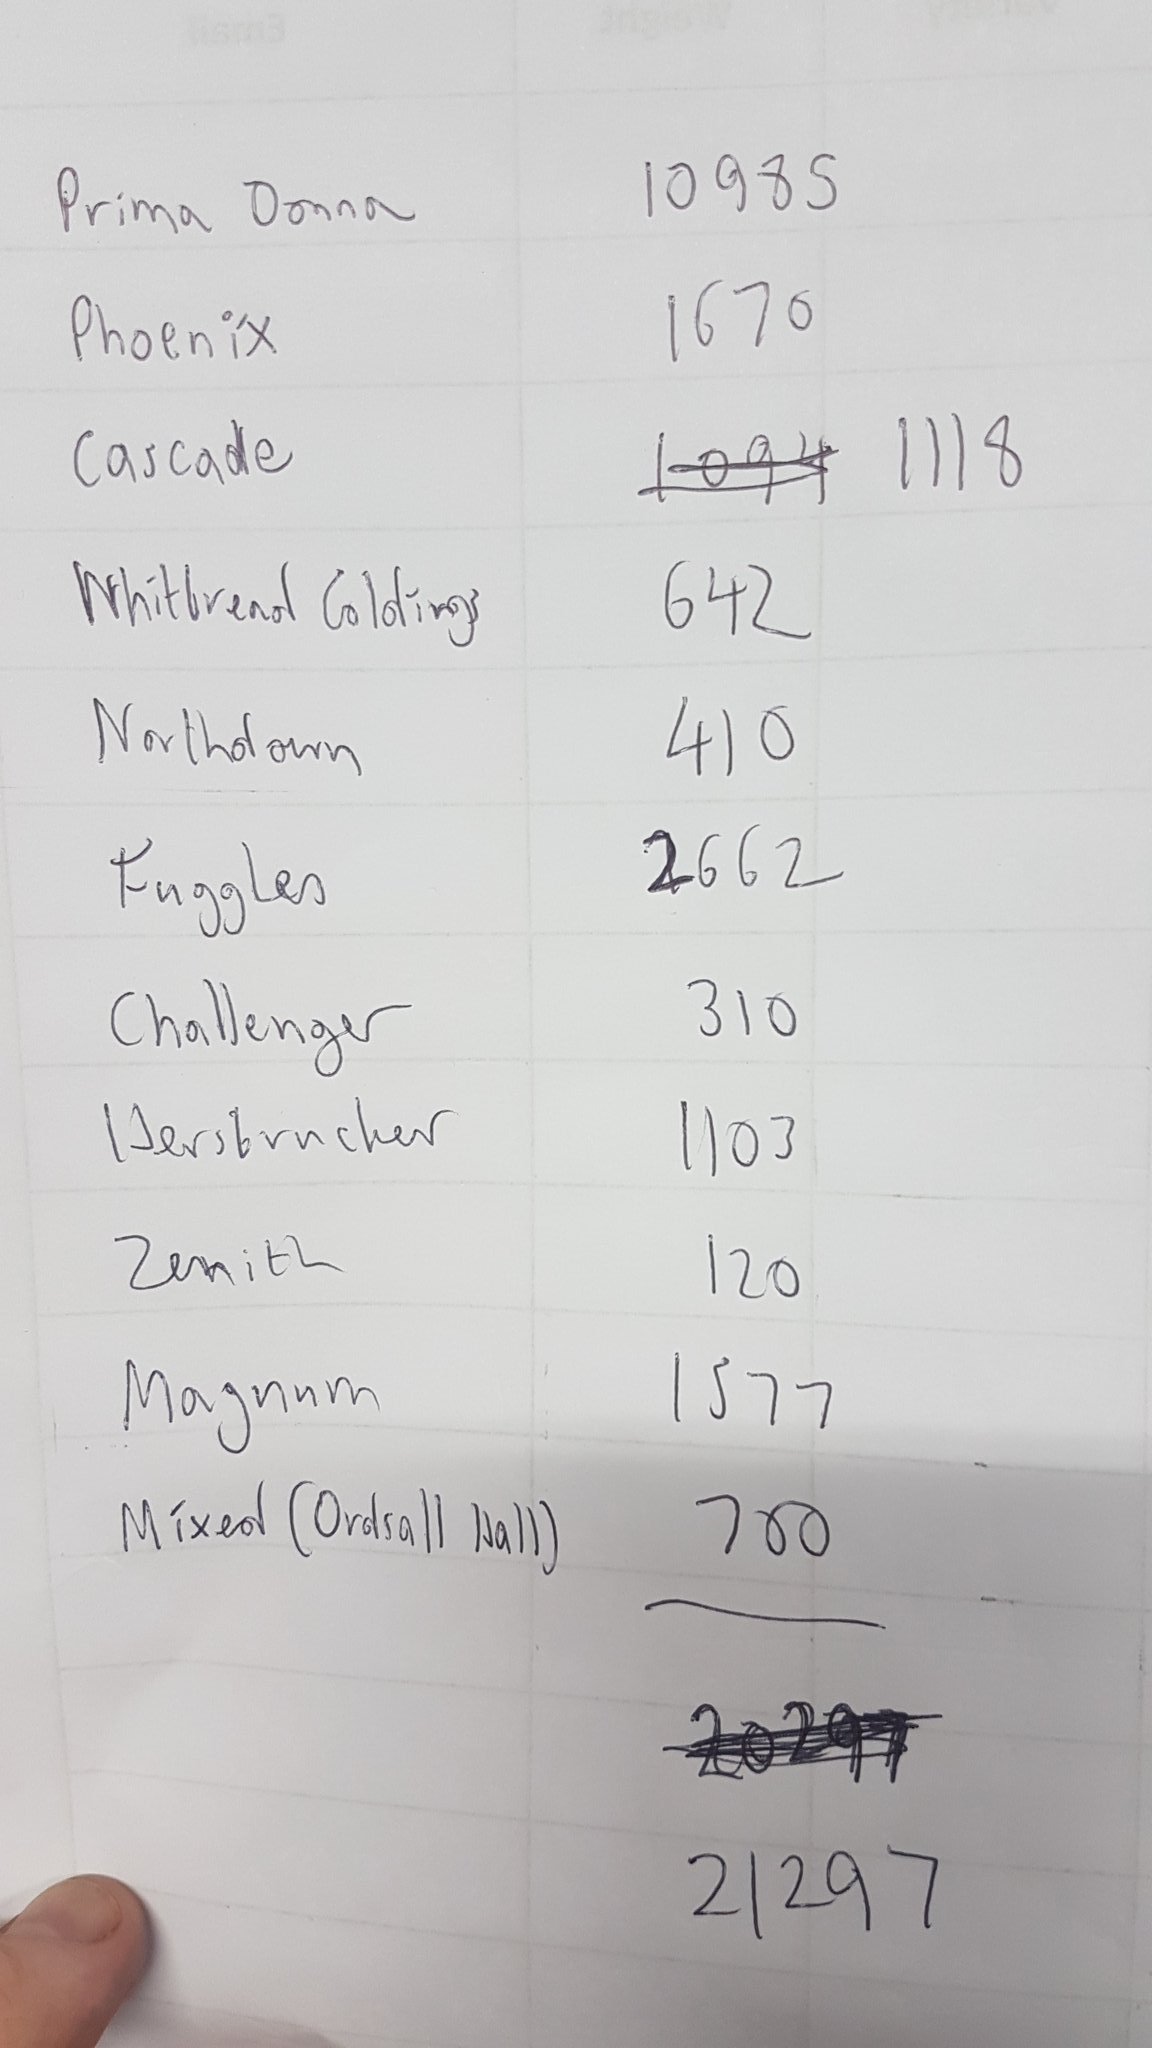 Prima Donna 10985
Phoenix 1670
Cascade 1094 1118
Whitbread Goldings 642
Northdown 410
Fuggles 2662
Challenger 310
Hersbrucker 1103
Zenith 120
Magnum 1577
Mixed (Ordsall Hall) 700
20297
21297